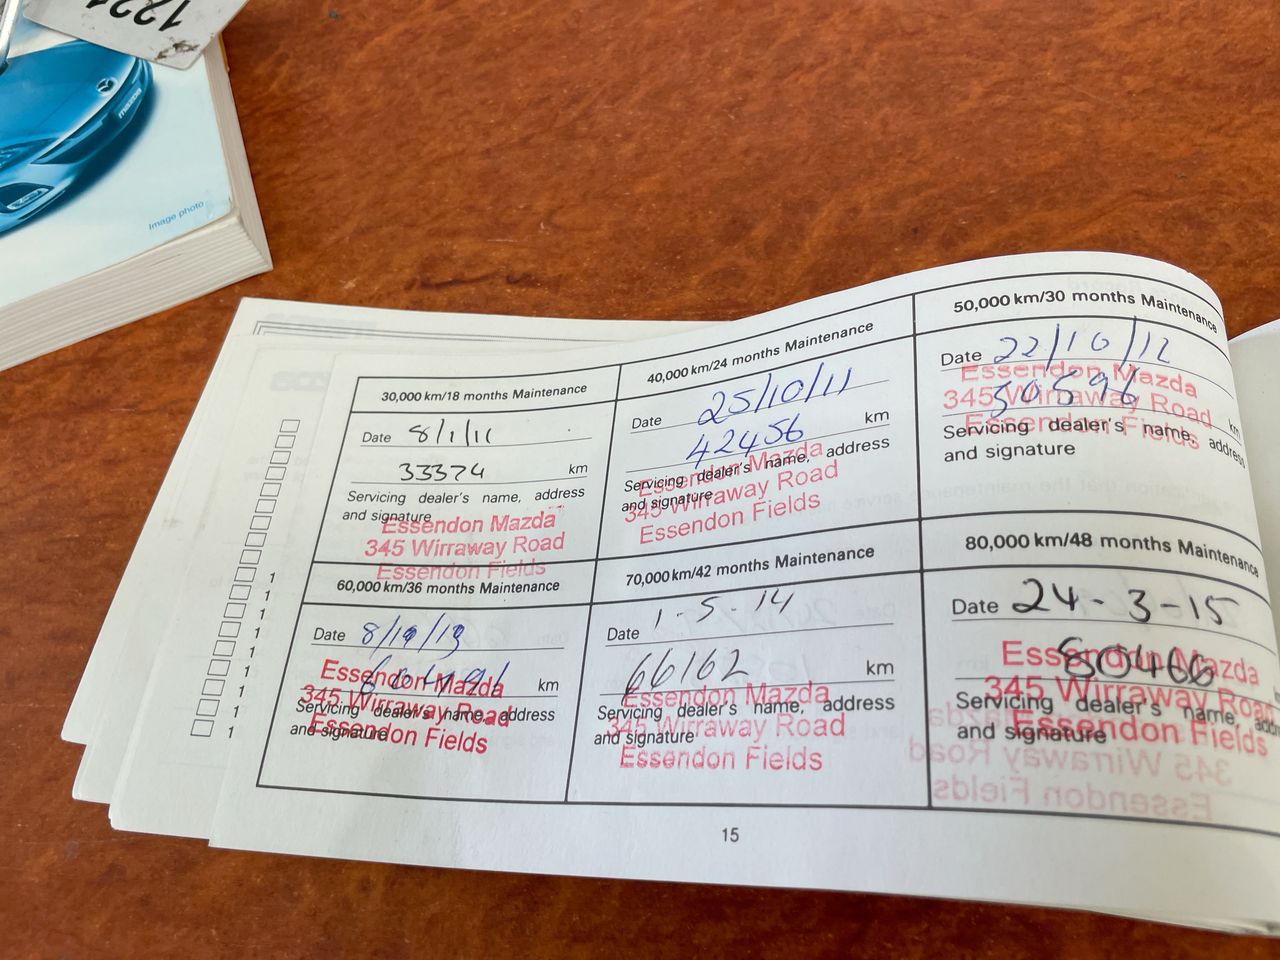 1221
mazda
Image photo
30,000 km/18 months Maintenance
Date 8/1/11
33374 km
Servicing dealer's name, address
and signature
Essendon Mazda
345 Wirraway Road
Essendon Fields
40,000 km/24 months Maintenance
Date 25/10/11
42456 km
Servicing dealer's name, address
and signature
Essendon Mazda
345 Wirraway Road
Essendon Fields
50,000 km/30 months Maintenance
Date 22/10/12
50596 km
Essendon Mazda
345 Wirraway Road
Essendon Fields
Servicing dealer's name, address
and signature
60,000 km/36 months Maintenance
Date
km
Essendon Mazda
345 Wirraway Road
Essendon Fields
Servicing dealer's name, address
and signature
70,000 km/42 months Maintenance
Date 1-5-14
66162 km
Servicing dealer's name, address
and signature
Essendon Mazda
345 Wirraway Road
Essendon Fields
80,000 km/48 months Maintenance
Date 24-3-15
80466
Essendon Mazda
345 Wirraway Road
Essendon Fields
Servicing dealer's name,
and signature
1
1
1
1
1
1
1
1
1
15